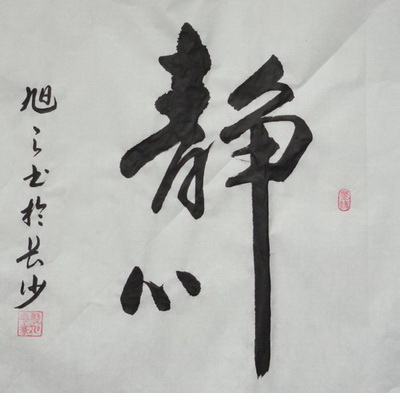 静心
旭之书於长沙